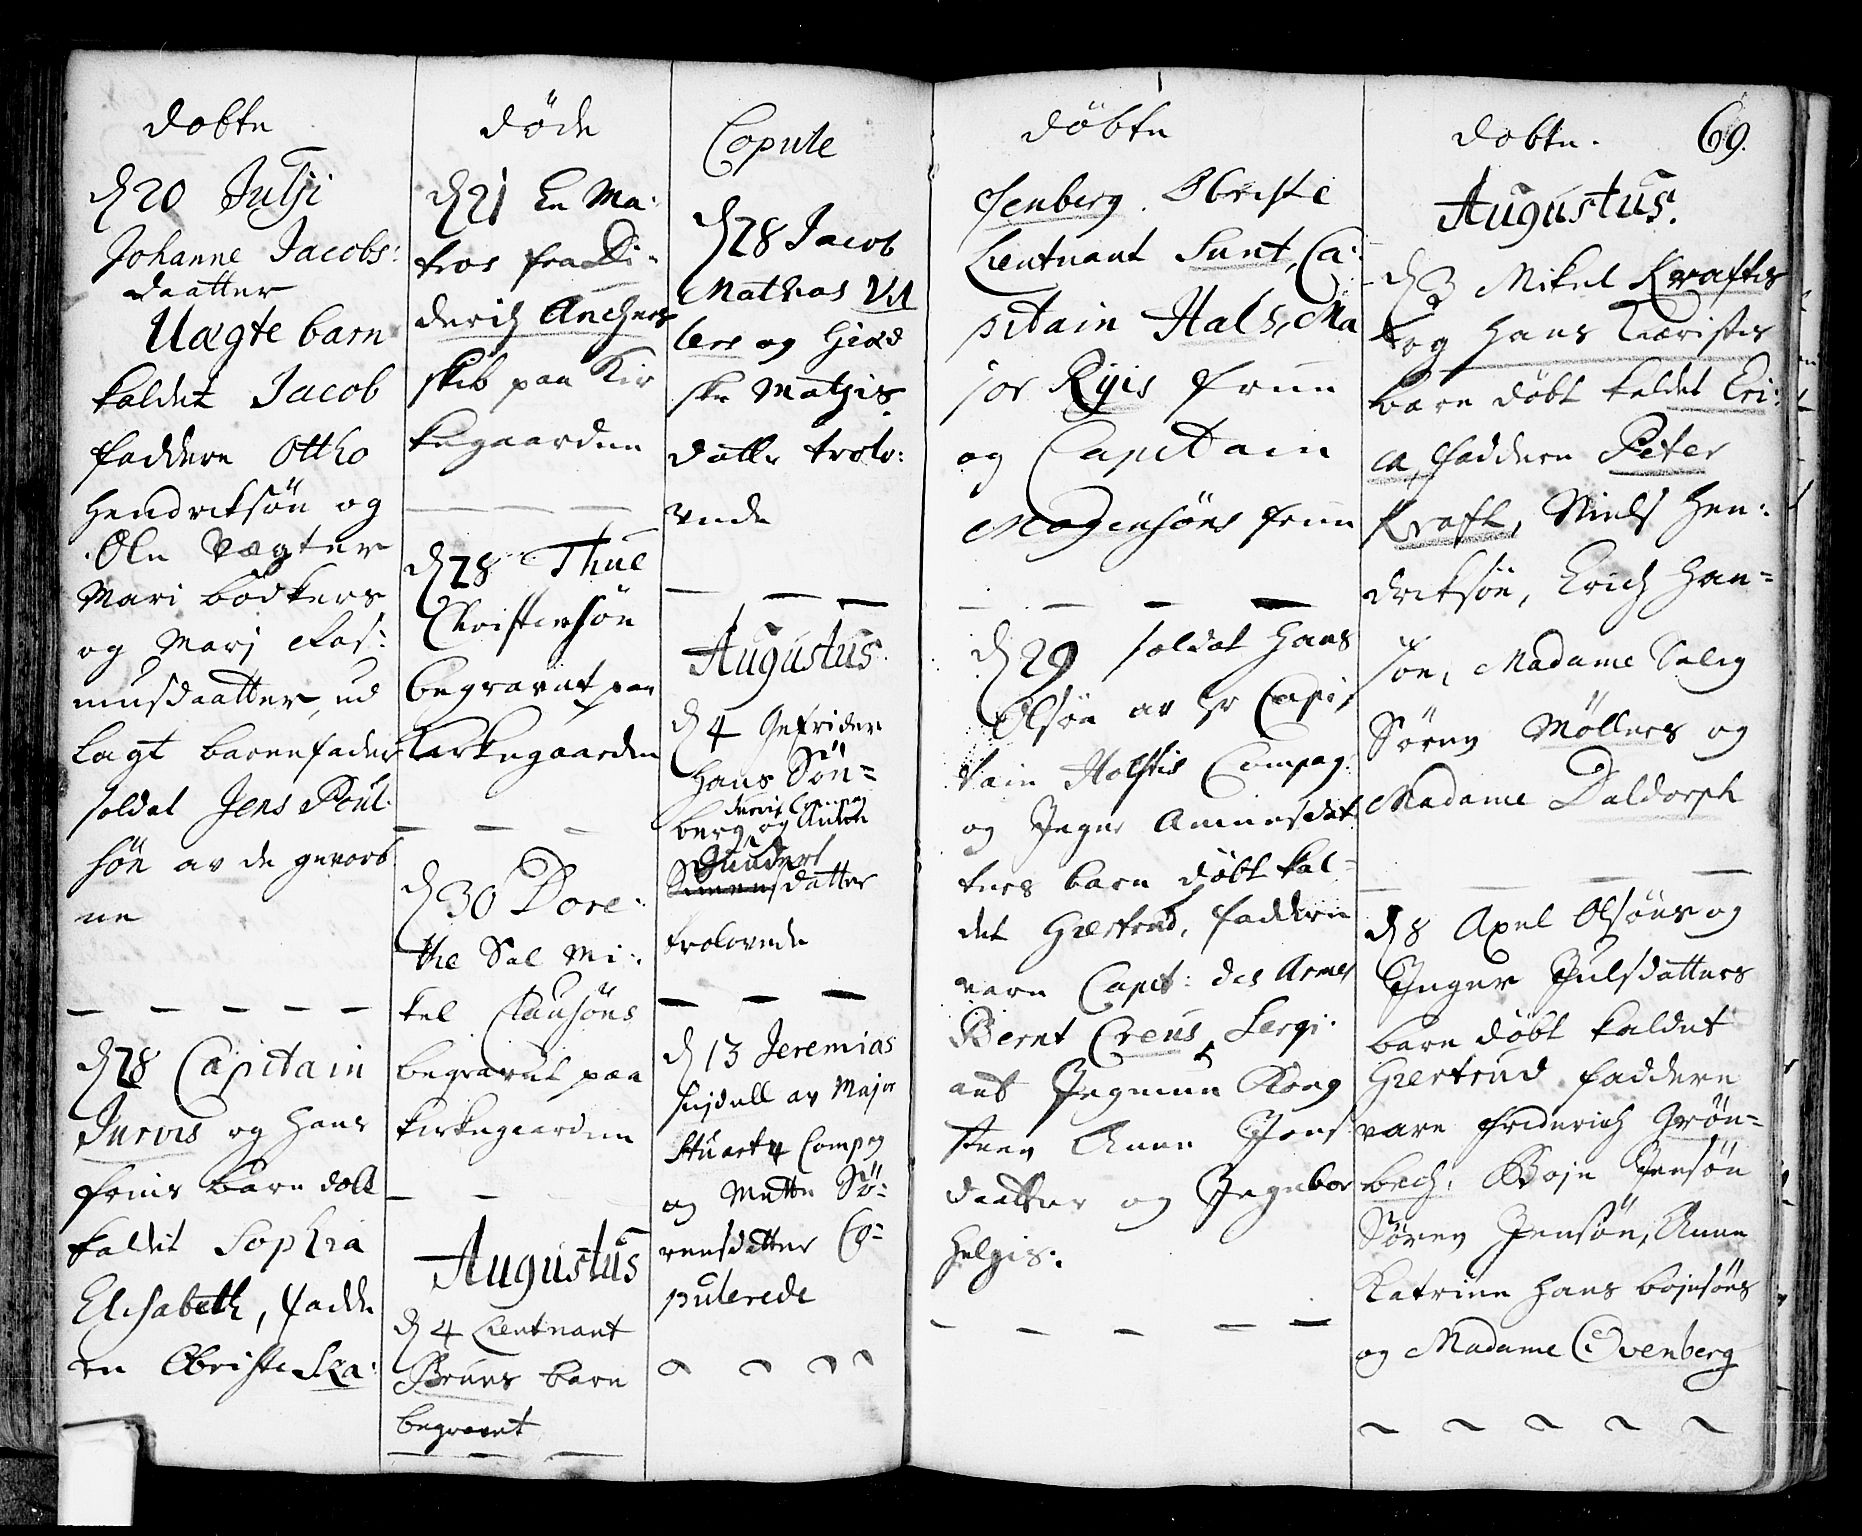 døbte
d 20 Julji
Johanne Jacobs:
daatter
Uægte barn
kaldet Jacob
faddere Ottho
Hendriksøn og
Ole Vægter
Mari bødkers
og Marj Ras:
musdaatter, ud
lagt barnefader
soldat Jens Poul
søn av de gevorb
ne
d 28 Capitain
Jurvis og Hans
fruis barn døbt
kaldet Sophia
Elisabeth, fadde
re Obriste Ska:
døde
d 21 En Ma:
tros fra Di:
derich Anchers
skib paa Kir
kegaarden
d 28 Thue
Christensøn
begravet paa
Kirkegaarden
d 30 Dore:
the Sal Mi:
kel Clausøns
begravet paa
kirkegaarden
Augustus
d 4 Lieutnant
Bruns barn
begravet
Copule
d 28 Jacob
Mathias
og Giert
Matzis
datter trolo:
vede
Augustus
d 4 Gefrider
Hans Søn=
Jurvis Compag
berg og Anne
Gunders
datter
trolovede
d 13 Jeremias
av Major
Stuart Compag
og Mette Sø:
rensdatter Co=
pulerede
døbte
senberg. Obriste
Lieutnant Sunt, Ca:
pitain Hals, Ma
jor Ryis frue
og Capitain
Mogensøns frue
d 29 soldat Hans
Olsøn av Hr Capi
tain Holstis Compag:
og Inger Amundsdat
ters barn døbt kal=
det Giertrud, faddere
vare Capit: des Armes
Bernt Creus, Sergi
ant Ingmun Kong
steen Anne Jens
daatter og Ingebor
Helgis:
døbte. 69.
Augustus.
d 3 Mikel Krafts
og Hans Kæristes
barn døbt kaldet Eri:
ca, faddere Peter
Kraft, Niels Hen:
driksøn, Erich Han=
søn, Madame Salig
Søren Møllers og
Madame Daldorph
d 8 Axel Olsøns og
Inger Juulsdatters
barn døbt kaldet
Giertrud faddere
vare Friderich Grøn=
bech, Boje Jensøn
Søren Jensøn, Anne
Katrine Hans Bojesøns
og Madame Ovenberg